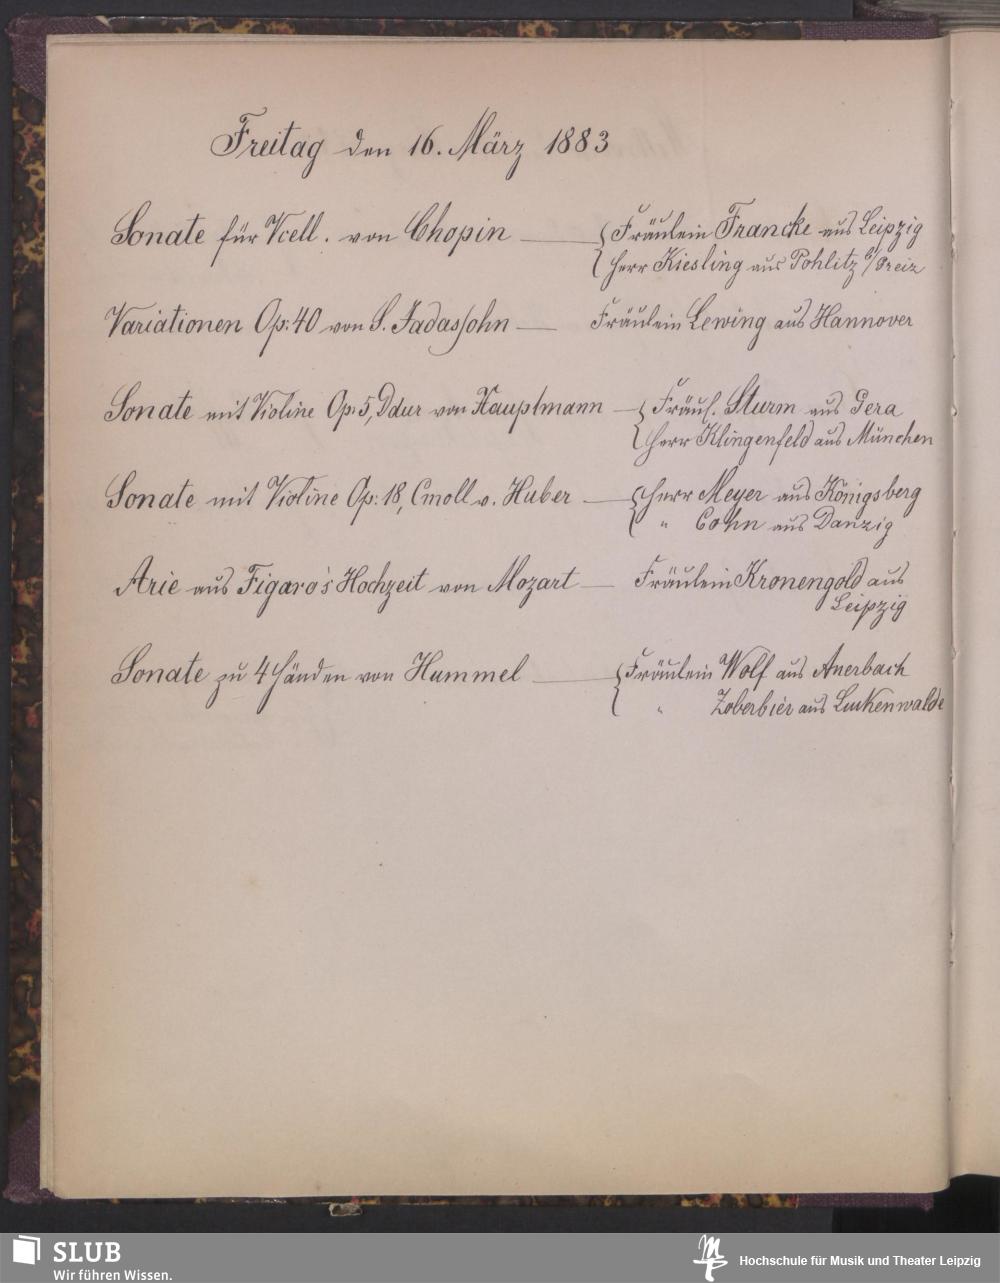 Freitag den 16. März 1883
Sonate für Vcell. von Chopin — { Fräulein Francke aus Leipzig
Herr Kiesling aus Pohlitz b/Greiz
Variationen Op: 40 von S. Jadassohn — Fräulein Lewing aus Hannover
Sonate mit Violine Op: 5, Ddur von Hauptmann — { Fräul. Sturm aus Gera
Herr Klingenfeld aus München
Sonate mit Violine Op: 18, Cmoll v. Huber — { Herr Meyer aus Königsberg
" Cohn aus Danzig
Arie aus Figaro's Hochzeit von Mozart — Fräulein Kronengold aus
Leipzig
Sonate zu 4 Händen von Hummel — { Fräulein Wolf aus Auerbach
" Zoberbier aus Luckenwalde
SLUB
Wir führen Wissen.
Hochschule für Musik und Theater Leipzig